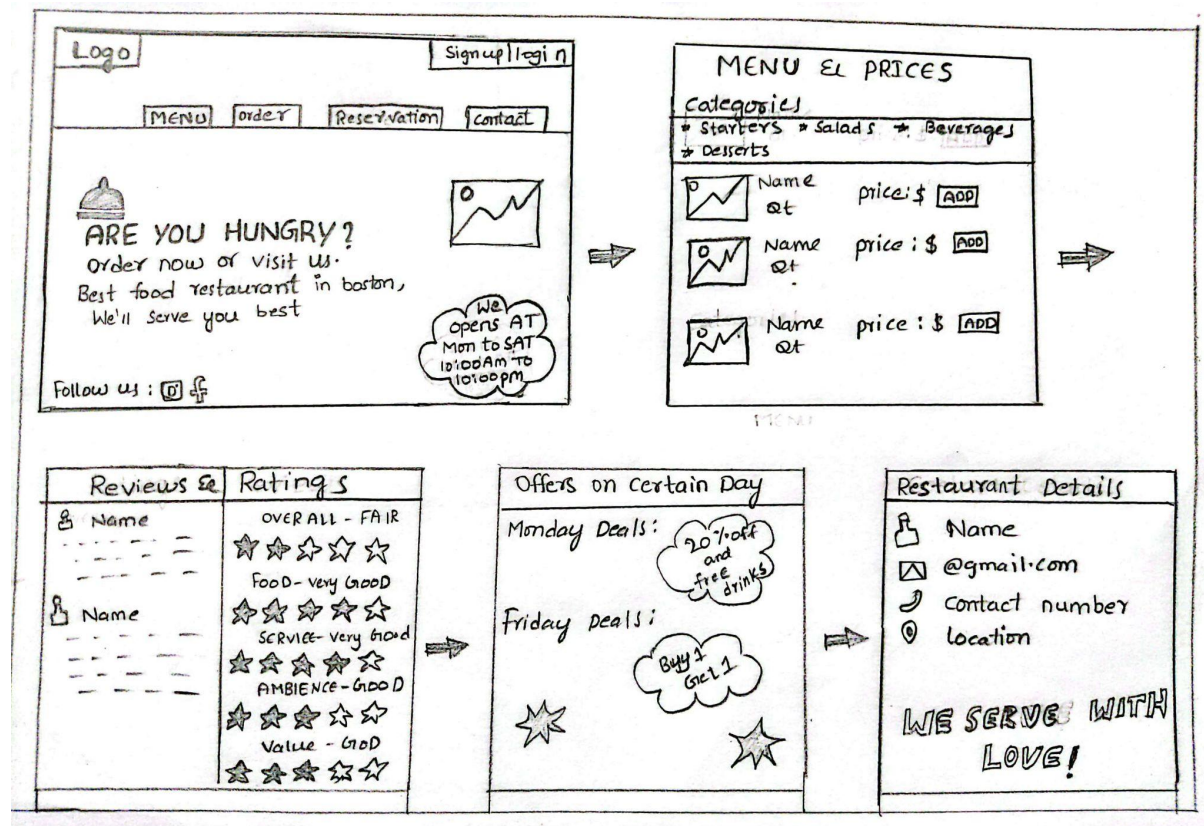 Logo
Signup|login
MENU
order
Reservation
contact
ARE YOU HUNGRY?
Order now or visit us.
Best food restaurant in boston,
We'll serve you best
We
opens AT
Mon to SAT
10:00Am To
10:00pm
Follow us :
MENU & PRICES
Categories
* Starters * Salads * Beverages
* Desserts
Name price:$ ADD
Qt
Name price : $ ADD
Qt
Name price : $ ADD
Qt
MENU
Reviews & Ratings
Name
Name
OVERALL - FAIR
FOOD - Very GOOD
SERVICE - very Good
AMBIENCE - GOOD
Value - GOD
Offers on certain Day
Monday Deals:
20% off
and
free
drinks
Friday Deals:
Buyy 1
Get 1
Restaurant Details
Name
@gmail.com
Contact number
location
WE SERVE WITH
LOVE!